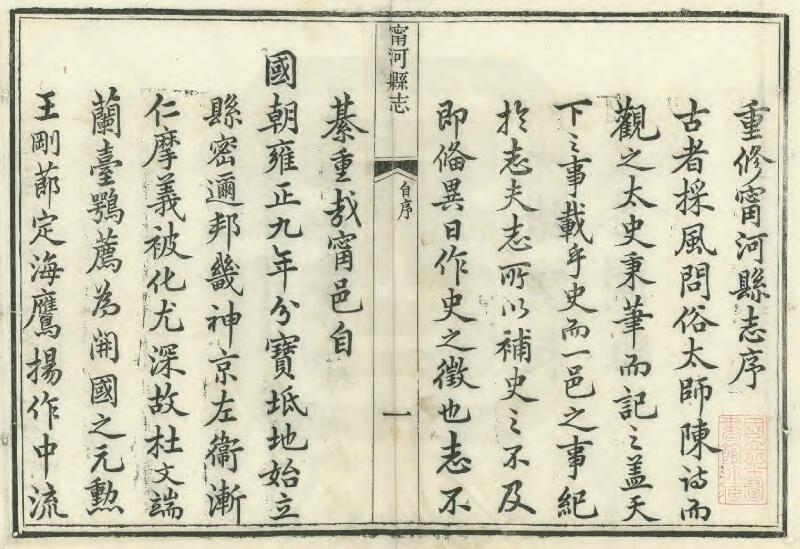 重修甯河縣志序
古者採風問俗太師陳詩而
觀之太史秉筆而記之盖天
下之事載乎史而一邑之事紀
扵志夫志所以補史之不及
即俻異日作史之徵也志不
甯河縣志
自序
一
綦重㢤甯邑自
國朝雍正九年分寶坻地始立
縣密邇邦畿神京左衞漸
仁摩義被化尤深故杜文端
蘭臺鶚薦為開國之元勲
王剛莭定海鷹揚作中流